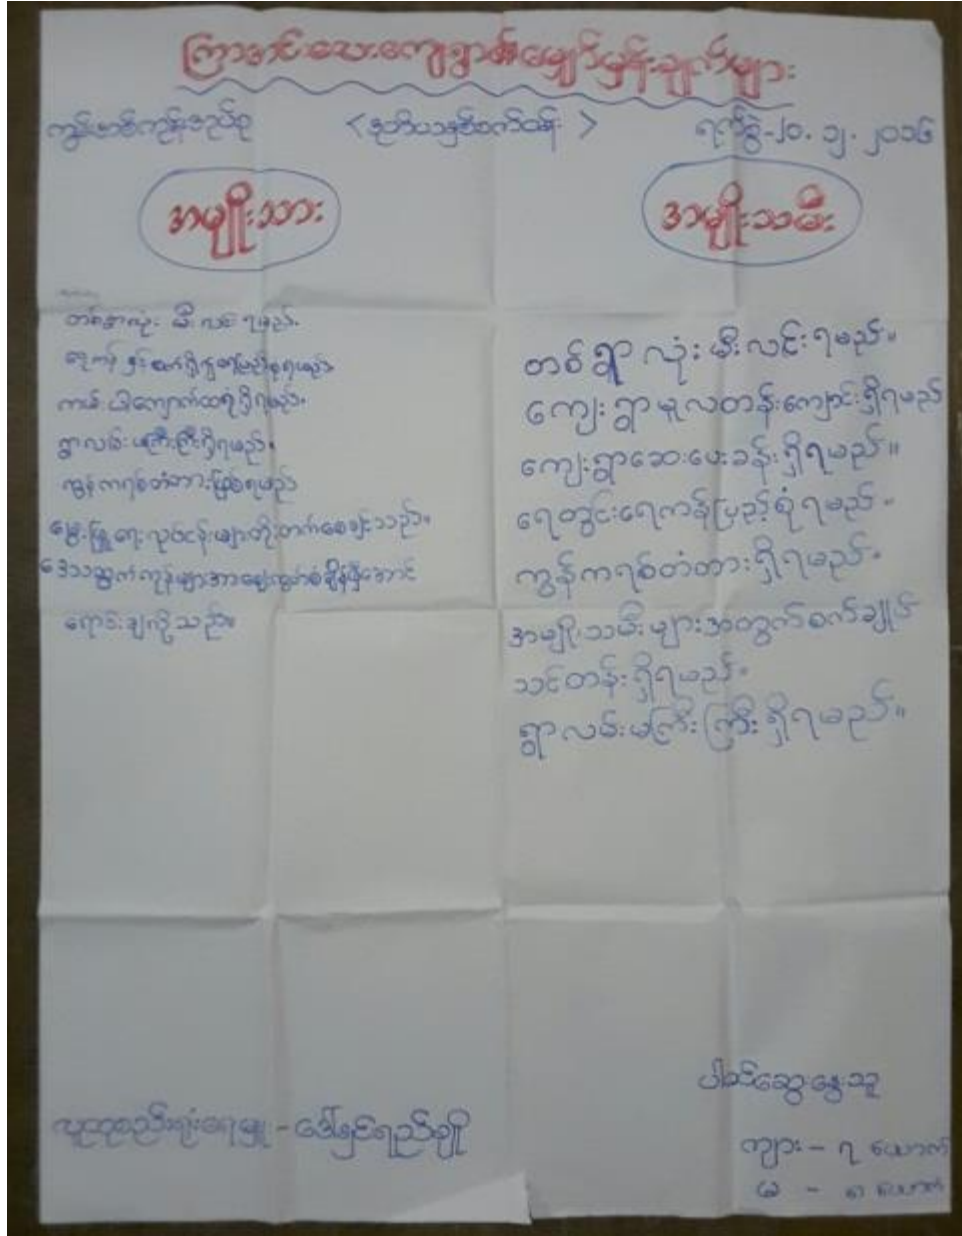 ကြာအင်းလေးကျေးရွာ၏မျှော်မှန်းချက်များ
ကွမ်းတစ်ကုန်းအုပ်စု <ဒုတိယနှစ်စက်ဝန်း> ရက်စွဲ-၂၀.၁၂.၂၀၁၆
အမျိုးသား
အမျိုးသမီး
တစ်ရွာလုံး မီးလင်းရမည်။
ကမ်းပါးကျောက်ထရံရှိရမည်။
ရွာလမ်းမကြီးကြီးရှိရမည်။
ကွန်ကရစ်တံတားဖြစ်ရမည်။
မွေးမြူရေးလုပ်ငန်းများတိုးတက်စေချင်သည်။
ဒေသထွက်ကုန်များအားဈေးကွက်စံချိန်မှီအောင်
ရောင်းချလိုသည်။
တစ်ရွာလုံးမီးလင်းရမည်။
ကျေးရွာမူလတန်းကျောင်းရှိရမည်
ကျေးရွာဆေးပေးခန်းရှိရမည်။
ရေတွင်းရေကန်ပြည့်စုံရမည်။
ကွန်ကရစ်တံတားရှိရမည်။
အမျိုးသမီးများအတွက်စက်ချုပ်
သင်တန်းရှိရမည်။
ရွာလမ်းမကြီးကြီးရှိရမည်။
ပါဝင်ဆွေးနွေးသူ
လူထုစည်းရုံးရေးမှူး - ဒေါ်နှင်းရည်ချို
ကျား - ၇ ယောက်
မ - ယောက်